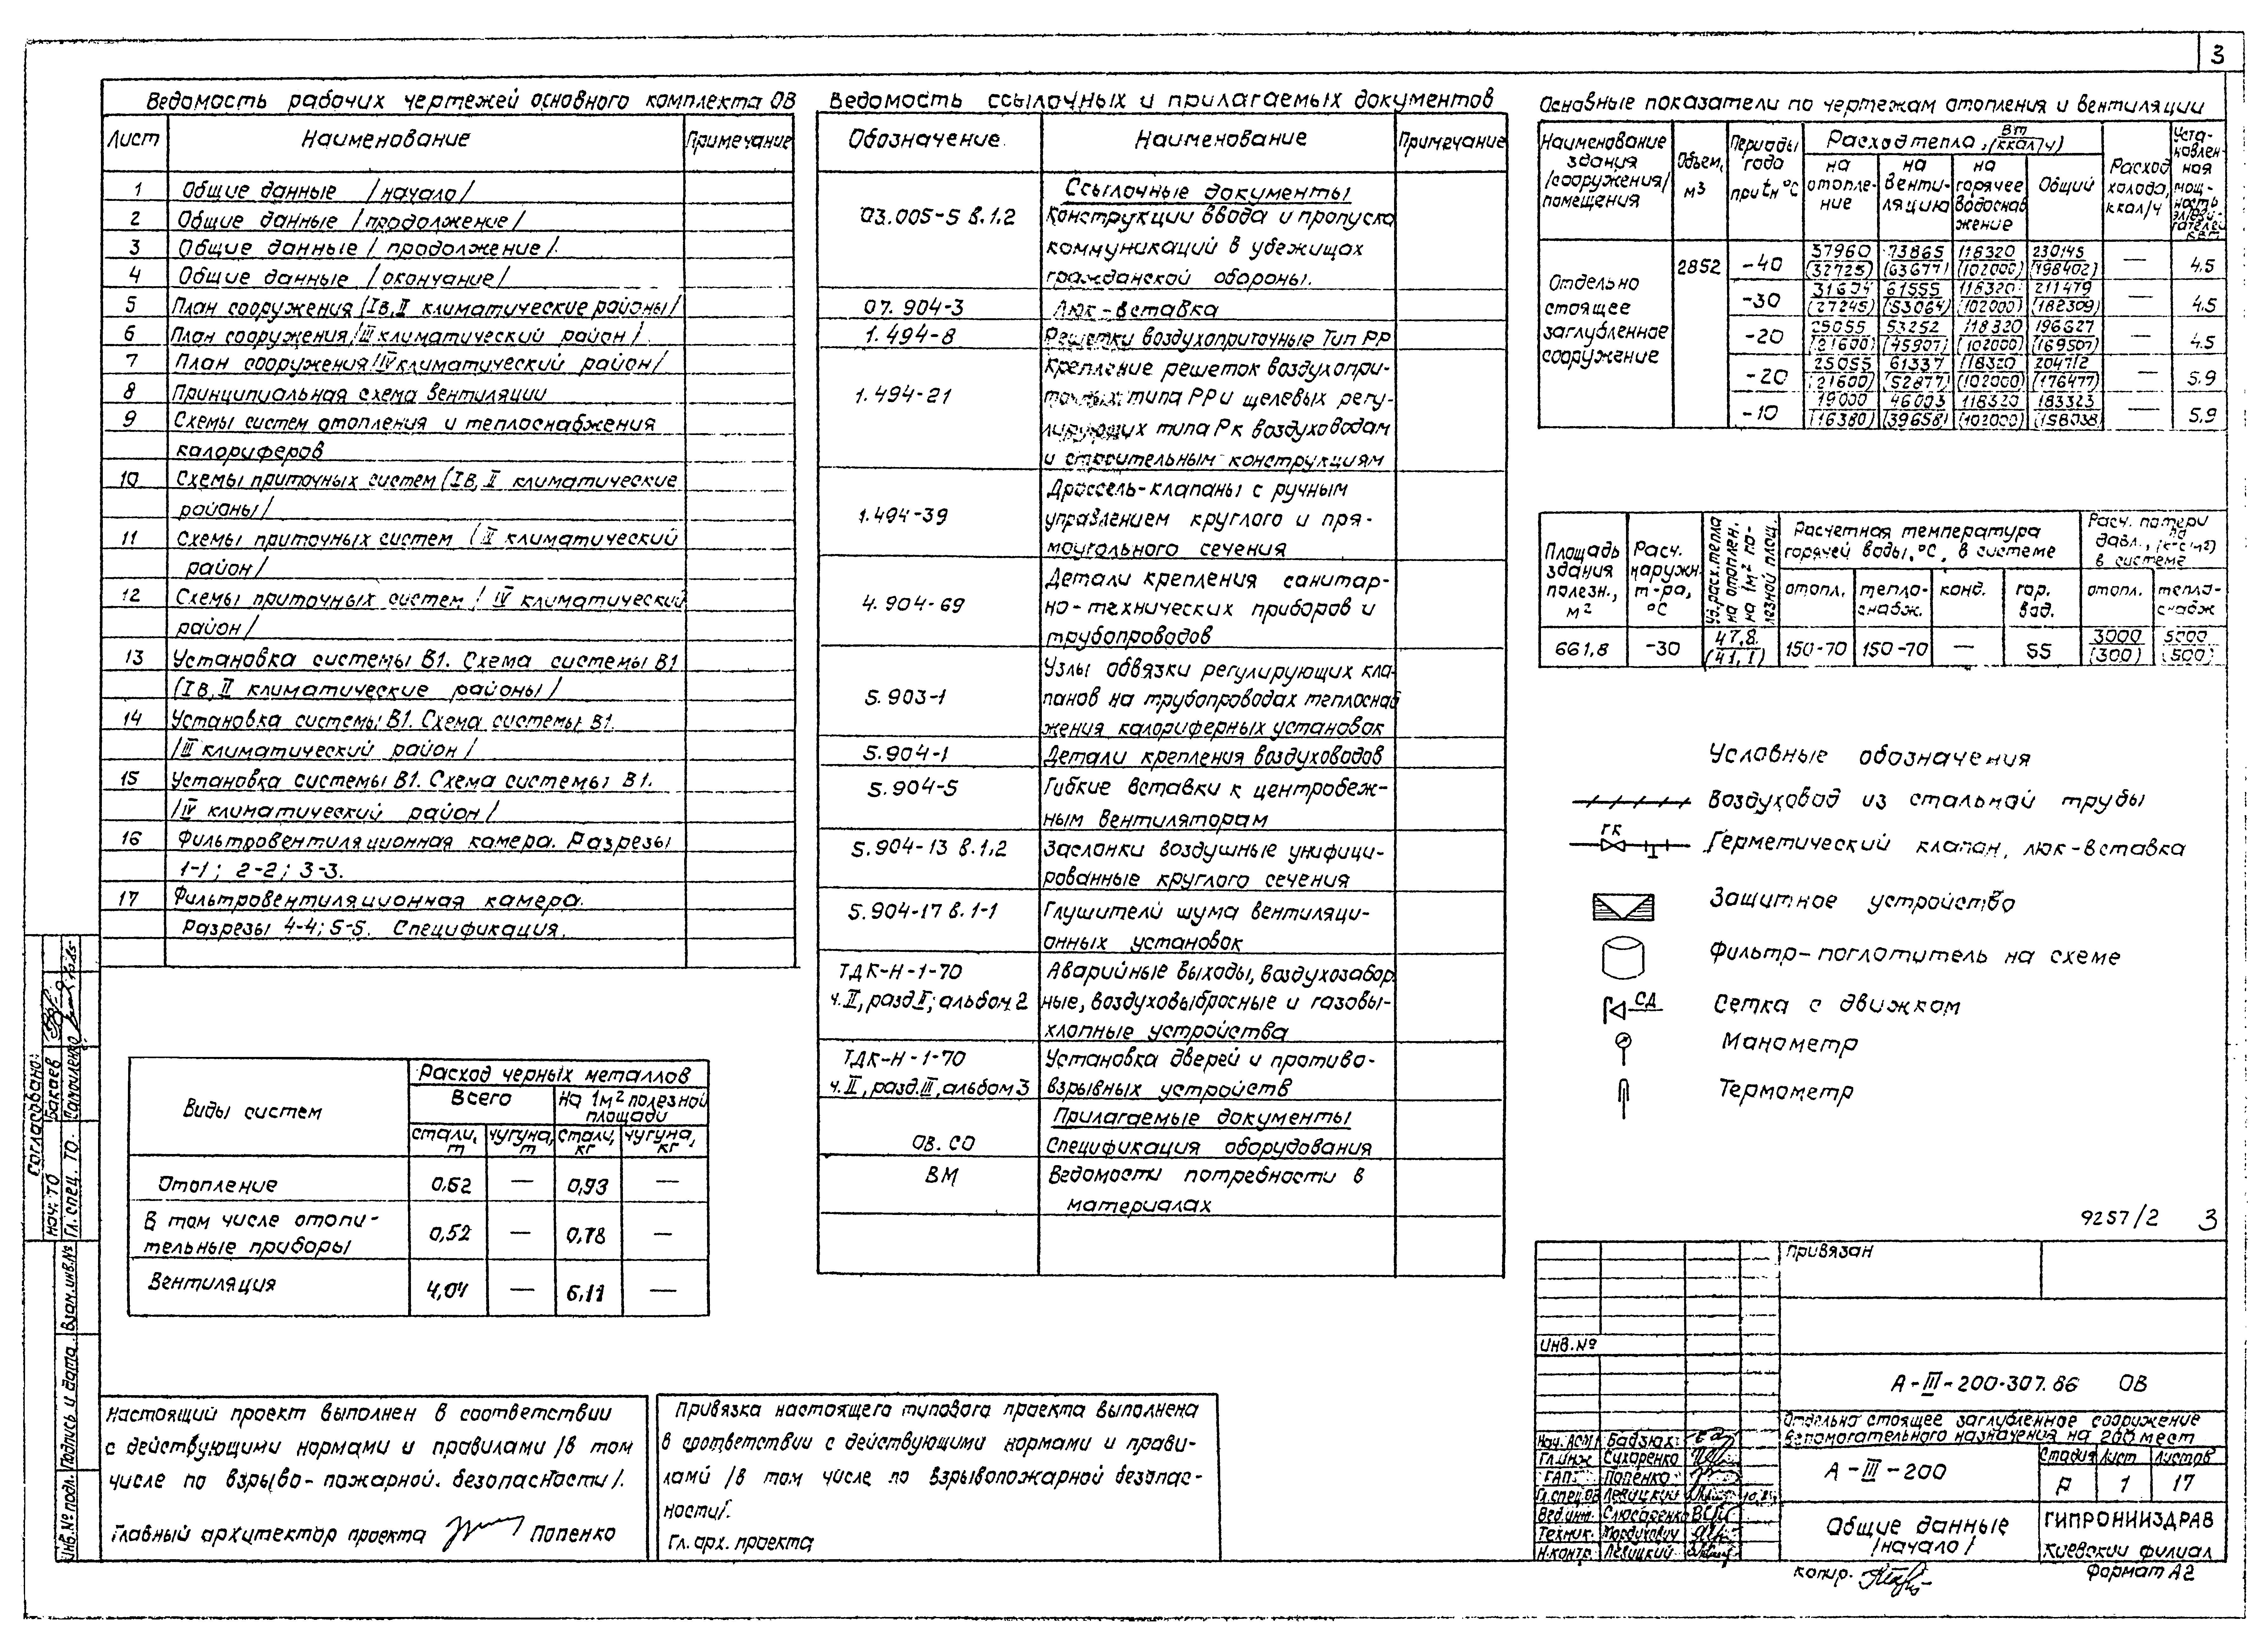 3
Ведомость рабочих чертежей основного комплекта ОВ
Лист Наименование Примечание
1 Общие данные /начало/
2 Общие данные /продолжение/
3 Общие данные /продолжение/.
4 Общие данные /окончание/
5 План сооружения /Iв, II климатические районы/
6 План сооружения /III климатический район/
7 План сооружения /IV климатический район/
8 Принципиальная схема вентиляции
9 Схемы систем отопления и теплоснабжения
калориферов
10 Схемы приточных систем (Iв, II климатические
районы/
11 Схемы приточных систем (III климатический
район/
12 Схемы приточных систем / IV климатический
район/
13 Установка системы В1. Схема системы В1
(Iв, II климатические районы/
14 Установка системы В1. Схема системы В1.
/III климатический район/
15 Установка системы В1. Схема системы В1.
/IV климатический район/
16 Фильтровентиляционная камера. Разрезы
1-1; 2-2; 3-3.
17 Фильтровентиляционная камера.
Разрезы 4-4; 5-5. Спецификация.
Виды систем Расход черных металлов
Всего На 1м² полезной
площади
стали, т чугуна, т стали, кг чугуна, кг
Отопление 0,62 — 0,93 —
В том числе отопи-
тельные приборы 0,52 — 0,78 —
Вентиляция 4,04 — 6,11 —
Настоящий проект выполнен в соответствии
с действующими нормами и правилами /в том
числе по взрыво-пожарной. безопасности/.
Главный архитектор проекта Попенко
Привязка настоящего типового проекта выполнена
в соответствии с действующими нормами и прави-
лами /в том числе по взрывопожарной безопас-
ности/.
Гл. арх. проекта
Ведомость ссылочных и прилагаемых документов
Обозначение Наименование Примечание
Ссылочные документы
03.005-5 в.1.2 Конструкции ввода и пропуска
коммуникаций в убежищах
гражданской обороны.
07.904-3 Люк-вставка
1.494-8 Решетки воздухоприточные Тип РР
Крепление решеток воздухопри-
1.494-21 точных типа РР и щелевых регу-
лирующих типа Рк воздуховодам
и строительным конструкциям
Дроссель-клапаны с ручным
1.494-39 управлением круглого и пря-
моугольного сечения
Детали крепления санитар-
4.904-69 но-технических приборов и
трубопроводов
Узлы обвязки регулирующих кла-
5.903-1 панов на трубопроводах теплоснаб
жения калориферных установок
5.904-1 Детали крепления воздуховодов
5.904-5 Гибкие вставки к центробеж-
ным вентиляторам
5.904-13 в.1.2 Заслонки воздушные унифици-
рованные круглого сечения
5.904-17 в.1-1 Глушители шума вентиляци-
онных установок
ТДК-Н-1-70 Аварийные выходы, воздухозабор
ч.II, разд.I; альбом 2 ные, воздуховыбросные и газовы-
хлопные устройства
ТДК-Н-1-70 Установка дверей и противо-
ч.II, разд.III, альбом 3 взрывных устройств
Прилагаемые документы
ОВ.СО Спецификация оборудования
ВМ Ведомости потребности в
материалах
Основные показатели по чертежам отопления и вентиляции
Наименование здания /сооружения/ помещения Объем, м3 Периоды года при tн °С Расход тепла, Вт (ккал/ч) Расход холода, ккал/ч Установленная мощ-ность эл/дви-гателей кВт
на отопле-ние на венти-ляцию на горячее водоснаб жение Общий
Отдельно
стоящее
заглубленное
сооружение
2852 -40 37960 (32725) 73865 (63677) 118320 (102000) 230145 (198402) — 4.5
-30 31604 (27245) 61555 (53064) 118320 (102000) 211479 (182309) — 4.5
-20 25055 (21600) 53252 (45907) 118320 (102000) 196627 (169507) — 4.5
-20 25055 (21600) 61337 (52877) 118320 (102000) 204712 (176477) — 5.9
-10 19000 (16380) 46003 (39658) 118320 (102000) 183323 (158038) — 5.9
Площадь здания полезн., м² Расч. наружн. т-ра, °С Уд. расх. тепла на отоплен. на 1м² полезной площ. Расчетная температура горячей воды, °С, в системе Расч. потери давл., Па (кгс/м²) в системе
отопл. тепло-снабж. конд. гор. вод. отопл. тепло-снабж
661,8 -30 47,8 (41,1) 150-70 150-70 — 55 3000 (300) 5000 (500)
Условные обозначения
Воздуховод из стальной трубы
ГК Герметический клапан, люк-вставка
Защитное устройство
Фильтр-поглотитель на схеме
СД Сетка с движком
Манометр
Термометр
9257/2 3
Привязан
Инв.№
А-III-200-307.86 ОВ
Отдельно стоящее заглубленное сооружение
вспомогательного назначения на 200 мест
А-III-200
Стадия Лист Листов
Р 1 17
Общие данные
/начало/
ГИПРОНИИЗДРАВ
Киевский филиал
Гл.инж Сухаренко
ГАП Попенко
Гл.спец.ОВ Левицкий
Вед.инж. Слюсаренко
Техник. Мордухович
Н.контр. Левицкий
копир.
Формат А2
Согласовано:
Нач. ТО Бакаев
Гл. спец. ТО. Самойленко
Взам.инв.№
Подпись и дата
Инв.№ подл.